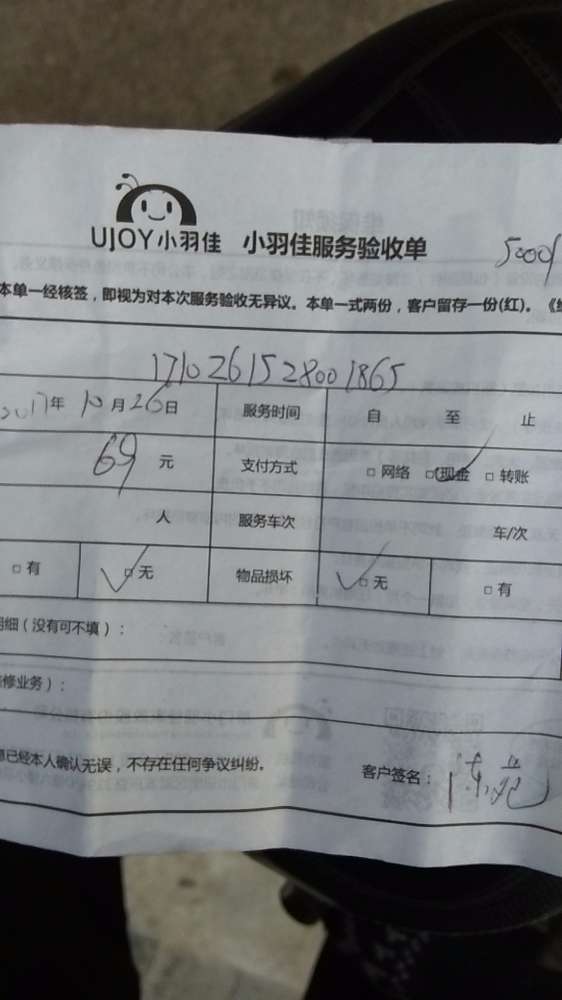 UJOY小羽佳 小羽佳服务验收单
本单一经核签，即视为对本次服务验收无异议。本单一式两份，客户留存一份(红)。《
1710261528001865
2017年 10月26日 服务时间 自 至 止
69 元 支付方式 □ 网络 □ 现金 □ 转账
人 服务车次 车/次
□ 有 □ 无 物品损坏 □ 无 □ 有
细（没有可不填）：
修业务）：
已经本人确认无误，不存在任何争议纠纷。 客户签名：